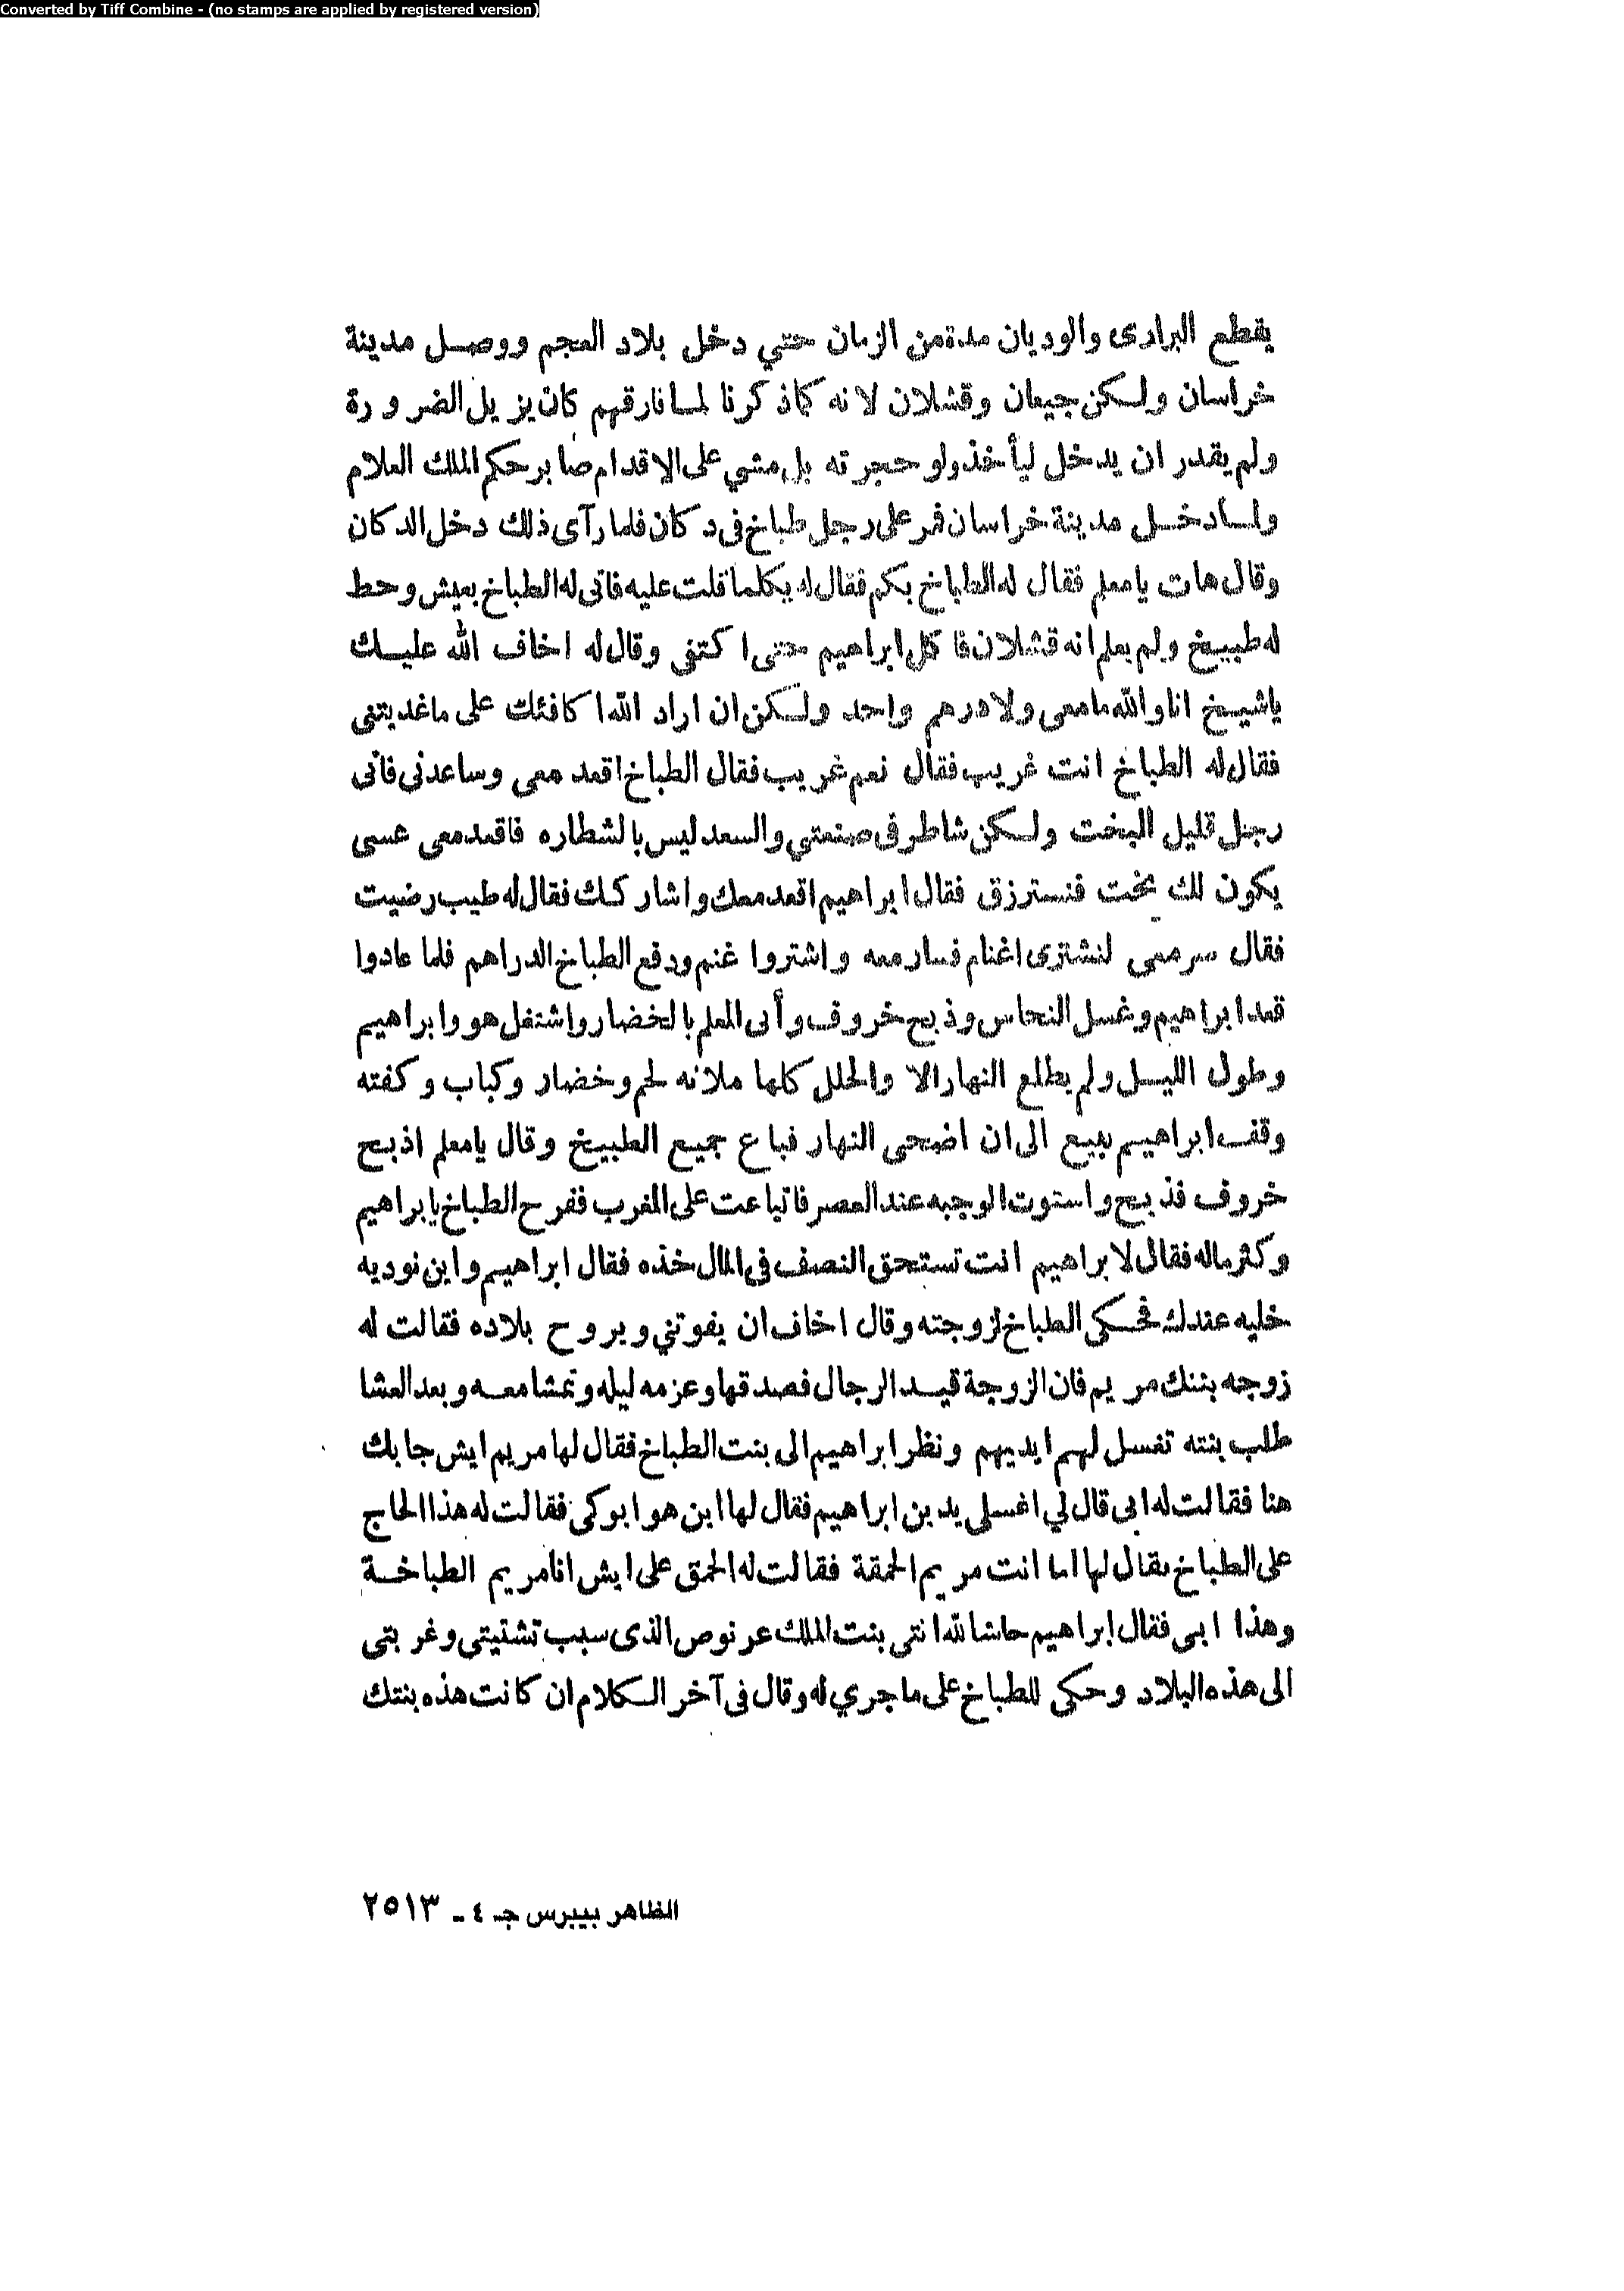 Converted by Tiff Combine - (no stamps are applied by registered version)
يقطع البرارى والوديان مدة من الزمان حتي دخل بلاد العجم ووصل مدينة
خراسان ولكن جيعان وقشلان لانه كما ذكرنا لما فارقهم كان يزيل الضرورة
ولم يقدر ان يدخل ليأخذ ولو حجرته بل مشي على الاقدام صابر حكم الملك العلام
ولما دخل مدينة خراسان فمر على رجل طباخ فى دكان فلما رآى ذلك دخل الدكان
وقال هات يامعلم فقال له الطباخ بكم فقال له بكلما قلت عليه فاتى له الطباخ بعيش وحط
له طبيخ ولم يعلم انه قشلان فاكل ابراهيم حتى اكتفى وقال له اخاف الله عليك
ياشيخ انا والله مامعى ولا درهم واحد ولكن ان اراد الله اكافئك على ماغديتنى
فقال له الطباخ انت غريب فقال نعم غريب فقال الطباخ اقعد معى وساعدنى فانى
رجل قليل البخت ولكن شاطر فى صنعتي والسعد ليس بالشطاره فاقعد معى عسى
يكون لك بخت فنسترزق فقال ابراهيم اقعد معك واشاركك فقال له طيب رضيت
فقال سر معى لنشترى اغنام فسار معه واشتروا غنم ودفع الطباخ الدراهم فلما عادوا
قعد ابراهيم وغسل النحاس وذبح خروف وأتى المعلم بالخضار واشتغل هو وابراهيم
وطول الليل ولم يطلع النهار الا والحلل كلها ملانه لحم وخضار وكباب وكفته
وقف ابراهيم يبيع الى ان اضحى النهار فباع جميع الطبيخ وقال يامعلم اذبح
خروف فذبح واستوت الوجبه عند العصر فاتباعت على المغرب ففرح الطباخ بابراهيم
وكثر ماله فقال لابراهيم انت تستحق النصف فى المال خذه فقال ابراهيم واين نوديه
خليه عندك فحكى الطباخ لزوجته وقال اخاف ان يفوتني ويروح بلاده فقالت له
زوجه بنتك مريم فان الزوجة قيد الرجال فصدقها وعزمه ليله وتمشا معه وبعد العشا
طلب بنته تغسل لهم ايديهم ونظر ابراهيم الى بنت الطباخ فقال لها مريم ايش جابك
هنا فقالت له ابى قال لي اغسلى يدين ابراهيم فقال لها اين هو ابوكى فقالت له هذا الحاج
على الطباخ فقال لها اما انت مريم الحمقة فقالت له الحمق على ايش انا مريم الطباخة
وهذا ابى فقال ابراهيم حاشا لله انتى بنت الملك عرنوص الذى سبب تشتيتى وغربتى
الى هذه البلاد وحكى للطباخ على ماجري له وقال فى آخر الكلام ان كانت هذه بنتك
الظاهر بيبرس جـ ٤ - ٢٥١٣